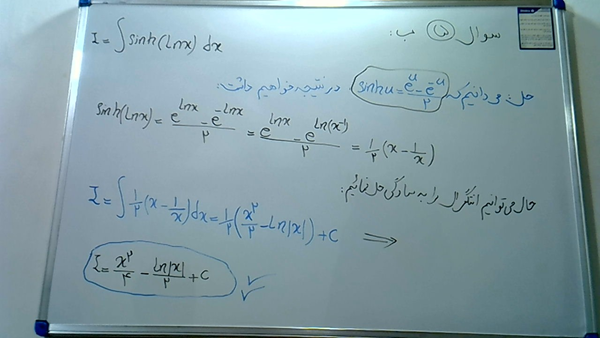 سوال ۵ ب:
I = ∫ sinh(Lnx) dx
حل: می دانیم که sinhu = (e^u - e^-u)/۲ در نتیجه خواهیم داشت:
sinh(Lnx) = (e^Lnx - e^-Lnx)/۲ = (e^Lnx - e^Ln(x^-1))/۲ = ۱/۲ (x - 1/x)
حال می توانیم انتگرال را به سادگی حل نمائیم:
I = ∫ ۱/۲ (x - 1/x) dx = ۱/۲ (x^۲/۲ - Ln|x|) + C ⟹
I = x^۲/۴ - Ln|x|/۲ + C ✓✓